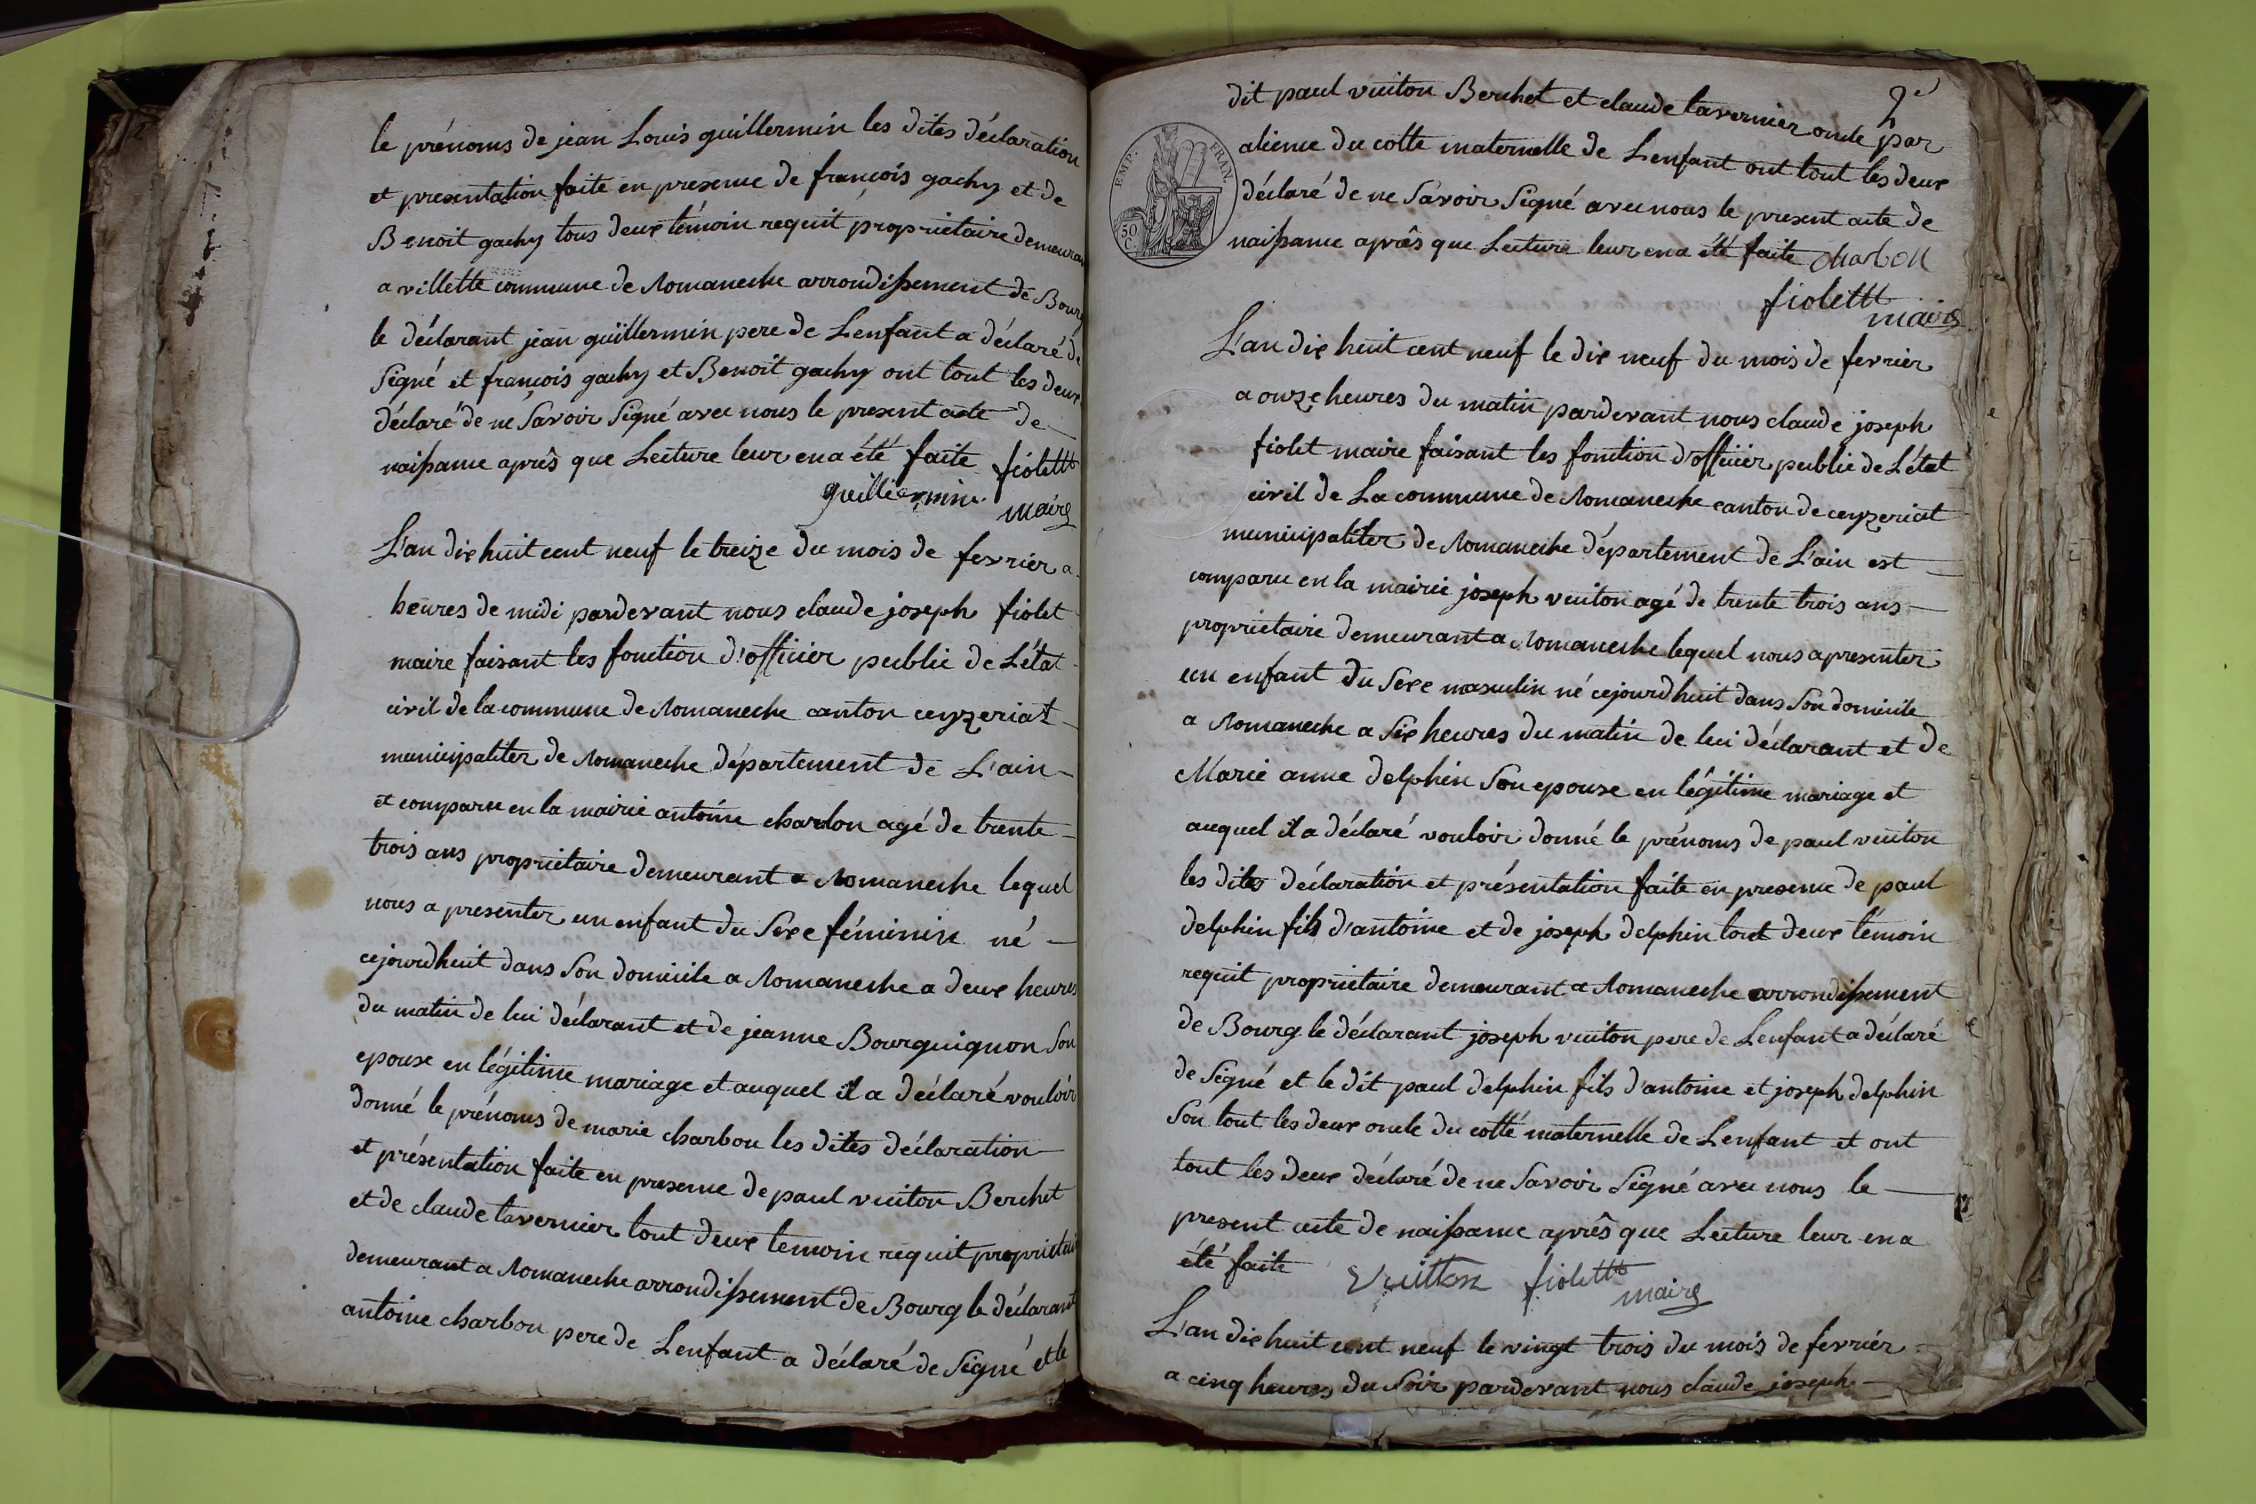 le prénoms de jean Louis guillermin les dites déclaration
et presentation faite en presence de françois gachy et de
Benoit gachy tous deux témoin requit propriétaire demeuran
a villette commune de Romaneche arrondissement de Bourg
le déclarant jean guillermin pere de Lenfant a déclaré de
Signé et françois gachy et Benoit gachy ont tout les deux
déclaré de ne Savoir Signé avec nous le present acte de
naissance après que Lecture leur en a été faite fiolettt
guilliermin maire
L'an dix huit cent neuf le treize du mois de fevrier a
heures de midi pardevant nous claude joseph fiolet
maire faisant les fonction d'officier public de L'état
civil de la commune de Romaneche canton ceyzeriat
municipaliter de Romaneche département de L'ain
et comparu en la mairie antoine charbon agé de trente
trois ans propriétaire demeurant a Romaneche lequel
nous a presenter un enfant du Sexe féminin né
cejourdhuit dans Son domicile a Romaneche a deux heures
du matin de lui déclarant et de jeanne Bourguignon Son
epouse en légitime mariage et auquel il a déclaré vouloir
donné le prénoms de marie charbon les dites déclaration
et présentation faite en presence de paul vuiton Berchet
et de claude tavernier tout deux temoin requit propriétai
demeurant a Romaneche arrondissement de Bourg le déclarant
antoine charbon pere de Lenfant a déclaré de Signé et le
2e
dit paul vuiton Berchet et claude tavernier oncle par
alience du cotte maternelle de Lenfant ont tout les deux
déclaré de ne Savoir Signé avec nous le present acte de
naissance après que Lecture leur en a été faite charbon
fiolettt
maire
EMP. FRAN.
50 C.
L'an dix huit cent neuf le dix neuf du mois de fevrier
a onze heures du matin pardevant nous claude joseph
fiolet maire faisant les fonction d'officier public de L'état
civil de La commune de Romaneche canton de ceyzeriat
municipaliter de Romaneche département de L'ain est
comparu en la mairie joseph vuiton agé de trente trois ans
propriétaire demeurant a Romaneche lequel nous a presenter
un enfant du Sexe masculin né cejourdhuit dans Son domicile
a Romaneche a Six heures du matin de lui déclarant et de
Marie anne delphin Son epouse en légitime mariage et
auquel il a déclaré vouloir donné le prénoms de paul vuiton
les dites déclaration et présentation faite en presence de paul
delphin fils d'antoine et de joseph delphin tout deux témoin
requit propriétaire demeurant a Romaneche arrondissement
de Bourg le déclarant joseph vuiton pere de Lenfant a déclaré
de Signé et le dit paul delphin fils d'antoine et joseph delphin
Son tout les deux oncle du cotté maternelle de Lenfant et ont
tout les deux déclaré de ne Savoir Signé avec nous le
present acte de naissance après que Lecture leur en a
été faite Vuitton fiolettt
maire
L'an dix huit cent neuf le vingt trois du mois de fevrier
a cinq heures du Soir pardevant nous claude joseph